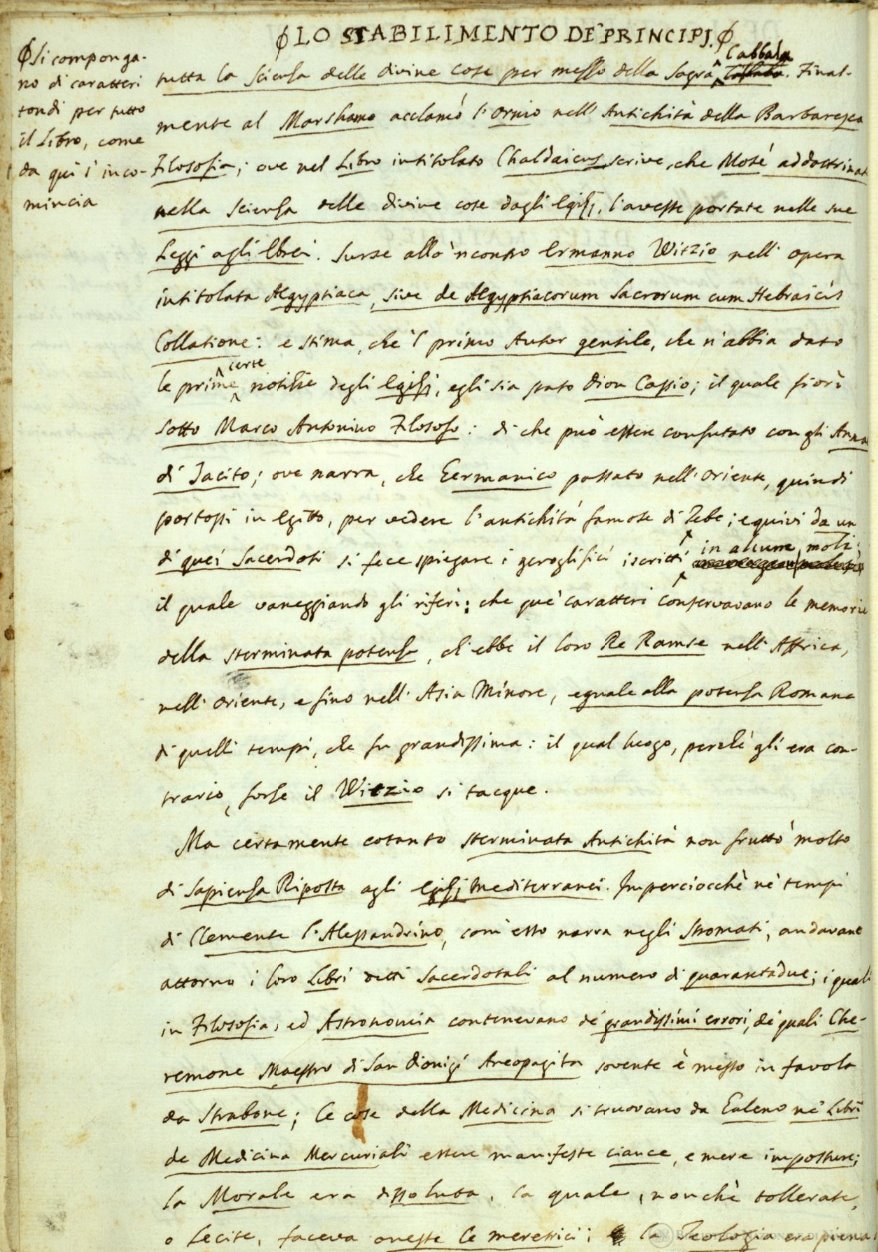 ϕ LO STABILIMENTO DE' PRINCIPJ. ϕ
ϕ Si componga-
no di caratteri
tondi per tutto
il Libro, come
da qui s' inco-
mincia
tutta la Scienza delle divine cose per mezzo della Sagra Cabbala. Final-
mente al Marshamo acclamò l' Ornio nell' Antichità della Barbaresca
Filosofia; ove nel Libro intitolato Chaldaicus scrive, che Mosè addottrinato
nella Scienza delle divine cose dagli Egizj, l' avesse portate nelle sue
Leggi agli Ebrei. Surse allo 'ncontro Ermanno Witzio nell' opera
intitolata Aegyptiaca, sive de Aegyptiacorum Sacrorum cum Hebraicis
Collatione: e stima, che 'l primo Autor gentile, che n' abbia dato
le prime certe notizie degli Egizj, egli sia stato Dion Cassio; il quale fiorì
sotto Marco Antonino Filosofo: di che può essere confutato con gli Annali
di Tacito; ove narra, che Germanico passato nell' Oriente, quindi
portossi in Egitto, per vedere l' antichità famose di Tebe; e quivi da un
di quei Sacerdoti si fece spiegare i geroglifici iscritti in alcune moli;
il quale vaneggiando gli riferì; che que' caratteri conservavano le memorie
della sterminata potenza, ch' ebbe il loro Re Ramse nell' Affrica,
nell' Oriente, e fino nell' Asia Minore, eguale alla potenza Romana
di quelli tempi, che fu grandissima: il qual luogo, perchè gli era con-
trario, forse il Witzio si tacque.
Ma certamente cotanto sterminata Antichità non fruttò molto
di Sapienza Riposta agli Egizj mediterranei. Imperciocchè ne' tempi
di Clemente l' Alessandrino, com' esso narra negli Stromati, andavano
attorno i loro Libri detti Sacerdotali al numero di quarantadue; i quali
in Filosofia, ed Astronomia contenevano de' grandissimi errori, de' quali Che-
remone Maestro di San Dionigi Areopagita sovente è messo in favola
da Strabone; le cose della Medicina si truovano da Galeno ne' Libri
de Medicina Mercuriali essere manifeste ciance, e mere imposture;
la Morale era dissoluta, la quale, nonchè tollerate,
o lecite, faceva oneste le meretrici; la Teologia era piena